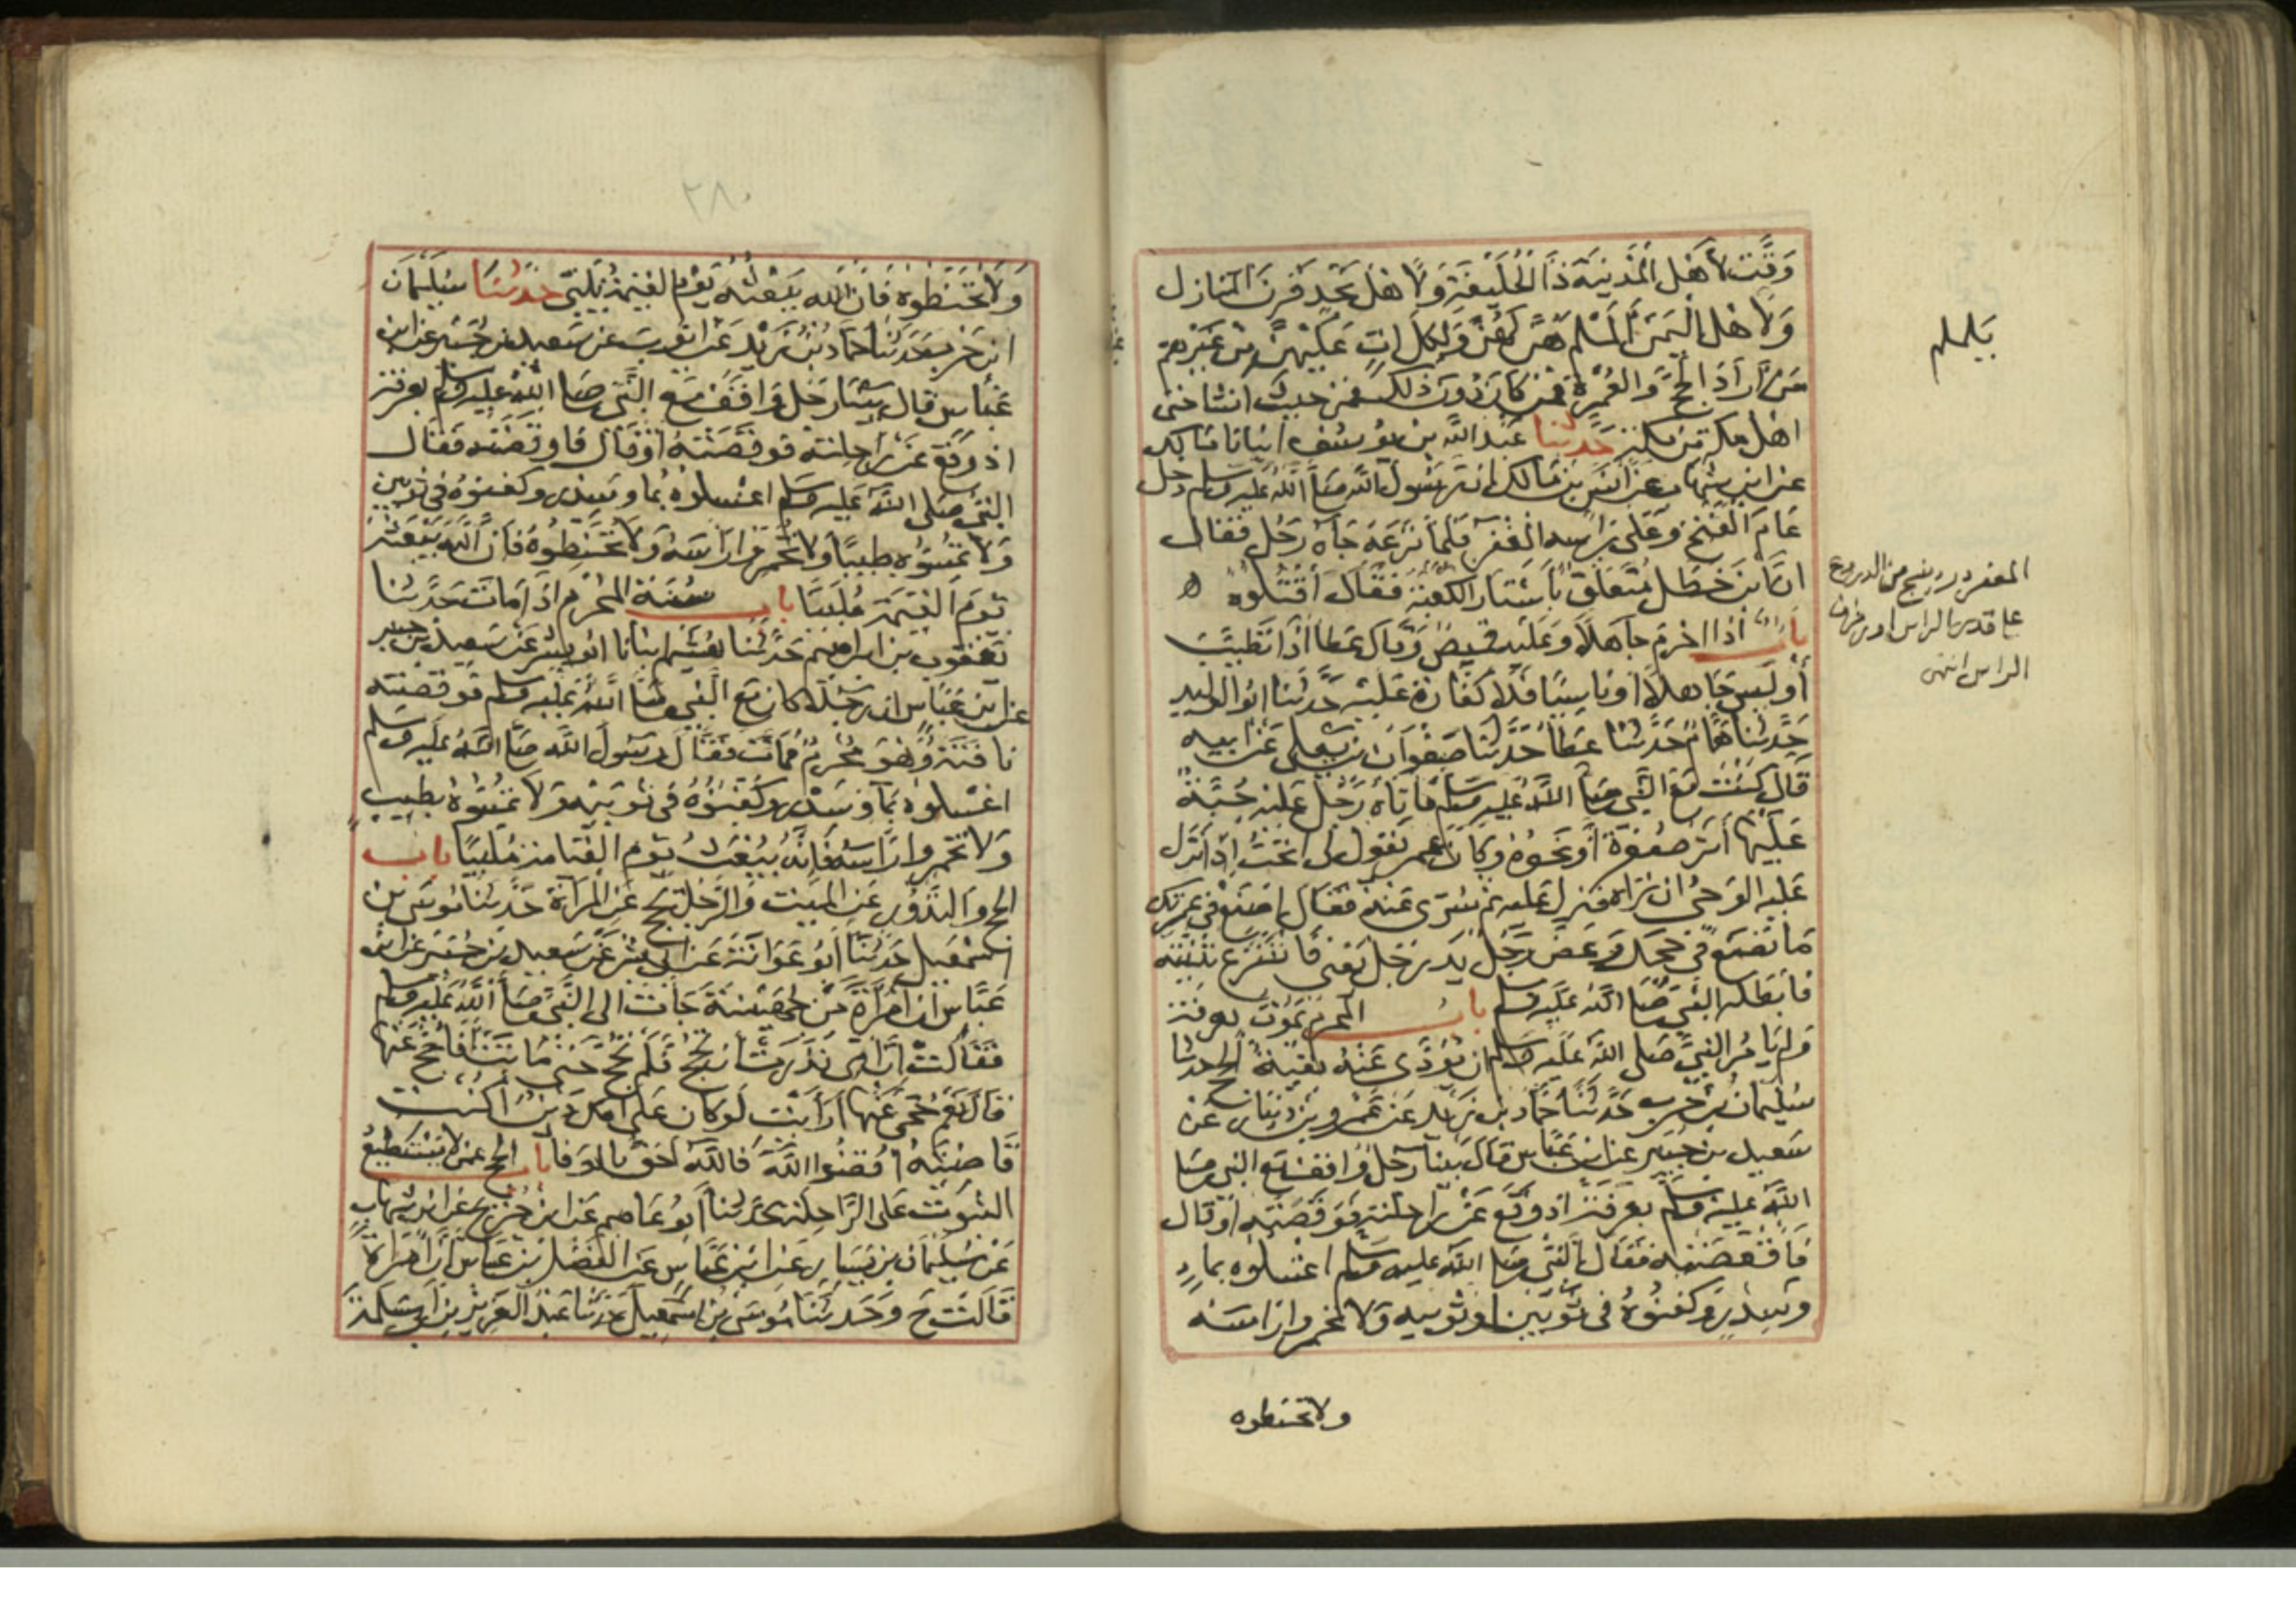 وَقَّتَ لأَهْلِ الْمَدِينَةِ ذَا الْحُلَيْفَةِ وَلأَهْلِ نَجْدٍ قَرْنَ الْمَنَازِلِ
وَلأَهْلِ الْيَمَنِ أَلَمْلَمَ هُنَّ لَهُنَّ وَلِكُلِّ آتٍ عَلَيْهِنَّ مِنْ غَيْرِهِمْ
مَنْ أَرَادَ الْحَجَّ وَالْعُمْرَةَ فَمَنْ كَانَ دُونَ ذَلِكَ فَمِنْ حَيْثُ أَنْشَأَ حَتَّى
أَهْلُ مَكَّةَ مِنْ مَكَّةَ حَدَّثَنَا عَبْدُ اللَّهِ بْنُ يُوسُفَ أَنْبَانَا مَالِكٌ
عَنِ ابْنِ شِهَابٍ عَنْ أَنَسِ بْنِ مَالِكٍ أَنَّ رَسُولَ اللَّهِ صَلَّى اللَّهُ عَلَيْهِ وَسَلَّمَ دَخَلَ
عَامَ الْفَتْحِ وَعَلَى رَأْسِهِ الْمِغْفَرُ فَلَمَّا نَزَعَهُ جَاءَ رَجُلٌ فَقَالَ
إِنَّ ابْنَ خَطَلٍ مُتَعَلِّقٌ بِأَسْتَارِ الْكَعْبَةِ فَقَالَ اقْتُلُوهُ ه
باب إِذَا أَحْرَمَ جَاهِلاً وَعَلَيْهِ قَمِيصٌ وَقَالَ عَطَا إِذَا تَطَيَّبَ
أَوْ لَبِسَ جَاهِلاً أَوْ نَاسِيًا فَلاَ كَفَّارَةَ عَلَيْهِ حَدَّثَنَا أَبُو الْوَلِيدِ
حَدَّثَنَا هَمَّامٌ حَدَّثَنَا عَطَا حَدَّثَنَا صَفْوَانُ بْنُ يَعْلَى عَنْ أَبِيهِ
قَالَ كُنْتُ مَعَ النَّبِيِّ صَلَّى اللَّهُ عَلَيْهِ وَسَلَّمَ فَأَتَاهُ رَجُلٌ عَلَيْهِ جُبَّةٌ
عَلَيْهَا أَثَرُ صُفْرَةٍ أَوْ نَحْوُهُ وَكَانَ عُمَرُ يَقُولُ لِي تُحِبُّ إِذَا نَزَلَ
عَلَيْهِ الْوَحْيُ أَنْ تَرَاهُ فَنَزَلَ عَلَيْهِ ثُمَّ سُرِّيَ عَنْهُ فَقَالَ اصْنَعْ فِي عُمْرَتِكَ
مَا تَصْنَعُ فِي حَجِّكَ وَعَضَّ رَجُلٌ يَدَ رَجُلٍ يَعْنِي فَانْتَزَعَ ثَنِيَّتَهُ
فَأَبْطَلَهُ النَّبِيُّ صَلَّى اللَّهُ عَلَيْهِ وَسَلَّمَ باب الْمُحْرِمِ يَمُوتُ بِعَرَفَةَ
وَلَمْ يَأْمُرِ النَّبِيُّ صَلَّى اللَّهُ عَلَيْهِ وَسَلَّمَ أَنْ يُؤَدَّى عَنْهُ بَقِيَّةُ الْحَجِّ حَدَّثَنَا
سُلَيْمَانُ بْنُ حَرْبٍ حَدَّثَنَا حَمَّادُ بْنُ زَيْدٍ عَنْ عَمْرِو بْنِ دِينَارٍ عَنْ
سَعِيدِ بْنِ جُبَيْرٍ عَنِ ابْنِ عَبَّاسٍ قَالَ بَيْنَا رَجُلٌ وَاقِفٌ مَعَ النَّبِيِّ صَلَّى
اللَّهُ عَلَيْهِ وَسَلَّمَ بِعَرَفَةَ إِذْ وَقَعَ عَنْ رَاحِلَتِهِ فَوَقَصَتْهُ أَوْ قَالَ
فَأَقْعَصَتْهُ فَقَالَ النَّبِيُّ صَلَّى اللَّهُ عَلَيْهِ وَسَلَّمَ اغْسِلُوهُ بِمَاءٍ
وَسِدْرٍ وَكَفِّنُوهُ فِي ثَوْبَيْنِ أَوْ ثَوْبَيْهِ وَلاَ تُخَمِّرُوا رَأْسَهُ
ولا تحنطوه
يَلملم
الراس انتهى
٢٨٠
وَلاَ تُحَنِّطُوهُ فَإِنَّ اللَّهَ يَبْعَثُهُ يَوْمَ الْقِيَمَةِ يُلَبِّي حَدَّثَنَا سُلَيْمَانُ
ابْنُ حَرْبٍ حَدَّثَنَا حَمَّادُ بْنُ زَيْدٍ عَنْ أَيُّوبَ عَنْ سَعِيدِ بْنِ جُبَيْرٍ عَنِ ابْنِ
عَبَّاسٍ قَالَ بَيْنَا رَجُلٌ وَاقِفٌ مَعَ النَّبِيِّ صَلَّى اللَّهُ عَلَيْهِ وَسَلَّمَ بِعَرَفَةَ
إِذْ وَقَعَ عَنْ رَاحِلَتِهِ فَوَقَصَتْهُ أَوْ قَالَ فَأَوْقَصَتْهُ فَقَالَ
النَّبِيُّ صَلَّى اللَّهُ عَلَيْهِ وَسَلَّمَ اغْسِلُوهُ بِمَا وَسِدْرٍ وَكَفِّنُوهُ فِي ثَوْبَيْنِ
وَلاَ تَمَسُّوهُ طِيبًا وَلاَ تُخَمِّرُوا رَأْسَهُ وَلاَ تُحَنِّطُوهُ فَإِنَّ اللَّهَ يَبْعَثُهُ
يَوْمَ الْقِيَمَةِ مُلَبِّيًا باب سُنَّةِ الْمُحْرِمِ إِذَا مَاتَ حَدَّثَنَا
يَعْقُوبُ بْنُ إِبْرَاهِيمَ حَدَّثَنَا هُشَيْمٌ أَنْبَانَا أَبُو بِشْرٍ عَنْ سَعِيدِ بْنِ جُبَيْرٍ
عَنِ ابْنِ عَبَّاسٍ أَنَّ رَجُلاً كَانَ مَعَ النَّبِيِّ صَلَّى اللَّهُ عَلَيْهِ وَسَلَّمَ فَوَقَصَتْهُ
نَاقَتُهُ وَهُوَ مُحْرِمٌ فَمَاتَ فَقَالَ رَسُولُ اللَّهِ صَلَّى اللَّهُ عَلَيْهِ وَسَلَّمَ
اغْسِلُوهُ بِمَاءٍ وَسِدْرٍ وَكَفِّنُوهُ فِي ثَوْبَيْهِ وَلاَ تَمَسُّوهُ بِطِيبٍ
وَلاَ تُخَمِّرُوا رَأْسَهُ فَإِنَّهُ يُبْعَثُ يَوْمَ الْقِيَامَةِ مُلَبِّيًا باب
الْحَجِّ وَالنُّذُورِ عَنِ الْمَيِّتِ وَالرَّجُلُ يَحُجُّ عَنِ الْمَرْأَةِ حَدَّثَنَا مُوسَى بْنُ
إِسْمَعِيلَ حَدَّثَنَا أَبُو عَوَانَةَ عَنْ أَبِي بِشْرٍ عَنْ سَعِيدِ بْنِ جُبَيْرٍ عَنِ ابْنِ
عَبَّاسٍ أَنَّ امْرَأَةً مِنْ جُهَيْنَةَ جَاءَتْ إِلَى النَّبِيِّ صَلَّى اللَّهُ عَلَيْهِ وَسَلَّمَ
فَقَالَتْ إِنَّ أُمِّي نَذَرَتْ أَنْ تَحُجَّ فَلَمْ تَحُجَّ حَتَّى مَاتَتْ أَفَأَحُجُّ عَنْهَا
قَالَ نَعَمْ حُجِّي عَنْهَا أَرَأَيْتِ لَوْ كَانَ عَلَى أُمِّكِ دَيْنٌ أَكُنْتِ
قَاضِيَتَهُ اقْضُوا اللَّهَ فَاللَّهُ أَحَقُّ بِالْوَفَا باب الْحَجِّ عَمَّنْ لاَ يَسْتَطِيعُ
الثُّبُوتَ عَلَى الرَّاحِلَةِ حَدَّثَنَا أَبُو عَاصِمٍ عَنِ ابْنِ جُرَيْجٍ عَنِ ابْنِ شِهَابٍ
عَنْ سُلَيْمَانَ بْنِ يَسَارٍ عَنِ ابْنِ عَبَّاسٍ عَنِ الْفَضْلِ بْنِ عَبَّاسٍ أَنَّ امْرَأَةً
قَالَتْ ح وَحَدَّثَنَا مُوسَى بْنُ إِسْمَعِيلَ حَدَّثَنَا عَبْدُ الْعَزِيزِ بْنُ أَبِي سَلَمَةَ